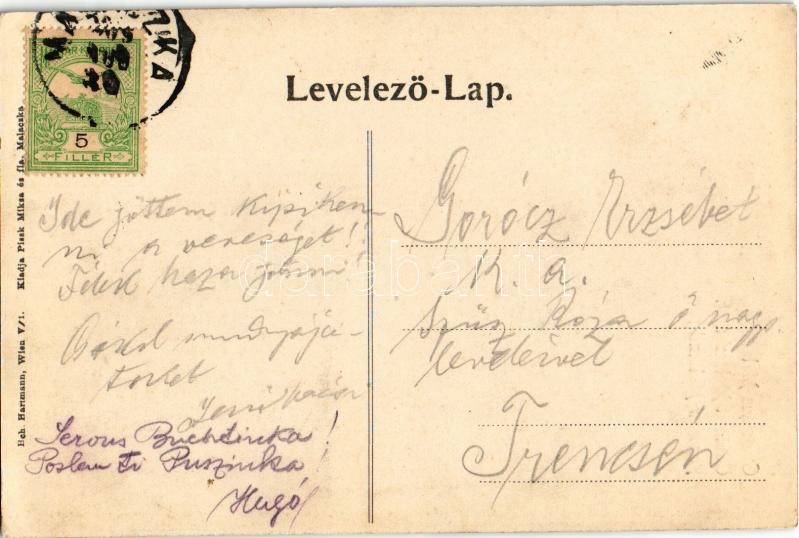 MA CZKA
MAGYAR KIR. POSTA
5
FILLÉR
Levelező-Lap.
Kiadja Pisk Miksa és fia, Malaczka
Bch. Hartmann, Wien V/1.
Ide jöttem kipihen-
ni a vereséget!!
haza jönni!
Csókol mindnyája-
tokat
Jenő
Serous Buchtinka!
Poslem ti Puszinka!
Hugó
Gorócz Erzsébet
k. a.
Szűz Róza ő nagy.
levelével
Trencsén
darabanth